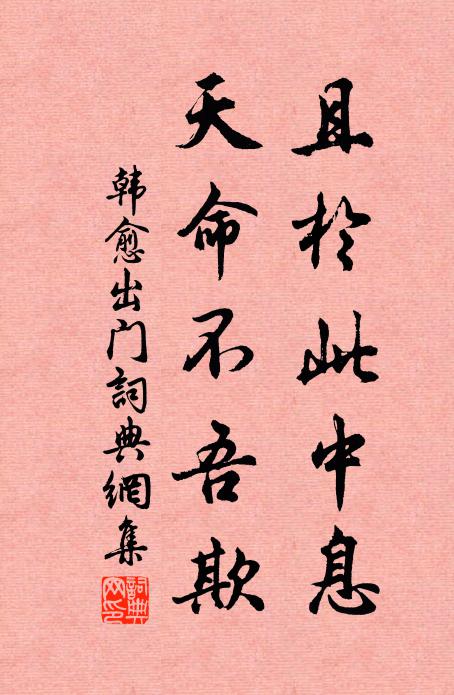 且於此中息
天命不吾欺
韩愈出门詞典網集
詞典網印